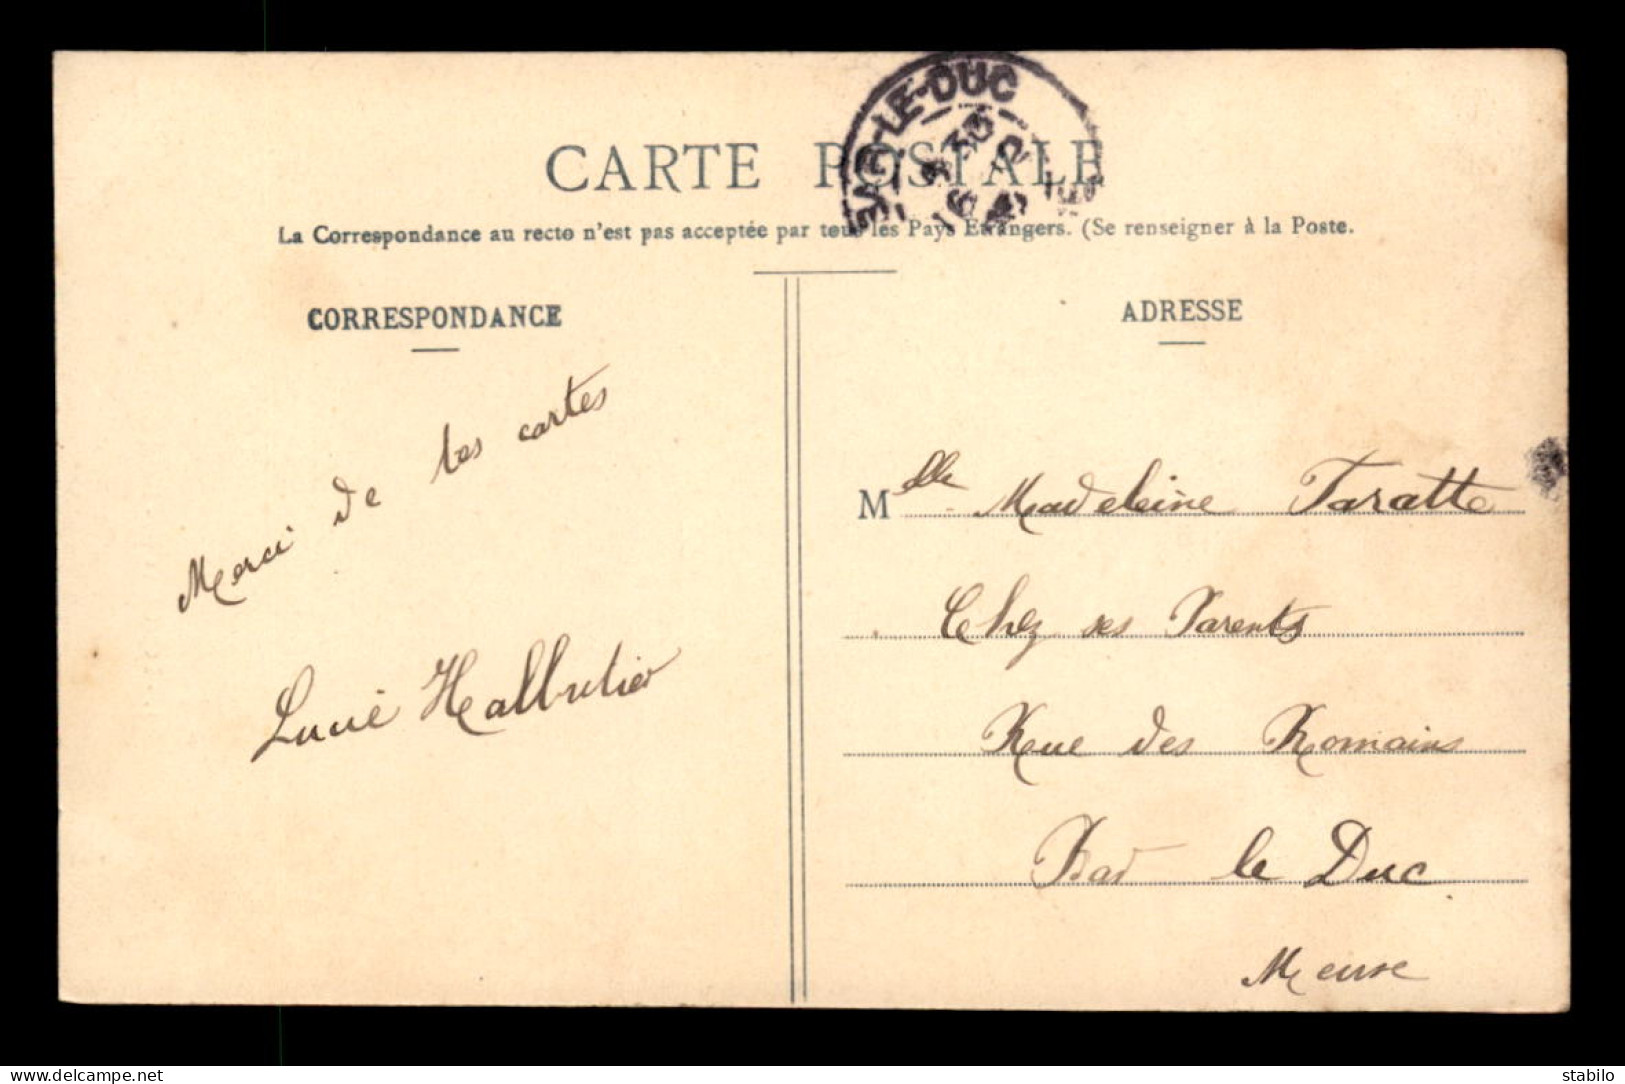 CARTE POSTALE
BAR-LE-DUC
La Correspondance au recto n'est pas acceptée par tous les Pays Etrangers. (Se renseigner à la Poste.
CORRESPONDANCE
Merci de tes cartes
Lucie Halbutier
ADRESSE
Melle Madeleine Taratte
Chez ses Parents
Rue des Romains
Bar le Duc
Meuse
delcampe.net
stabilo